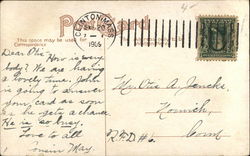 Post Card
CLINTON, MASS.
7 -
1906
This space may be used for
Correspondence
Dear Otis
How is every
body? We are having
a lovely time. John
is going to answer
your card as soon
as he gets a chance.
He is so busy.
Love to all
Cousin May.
Mr. Otis A.
Norwich,
R.F.D. #6.
Conn